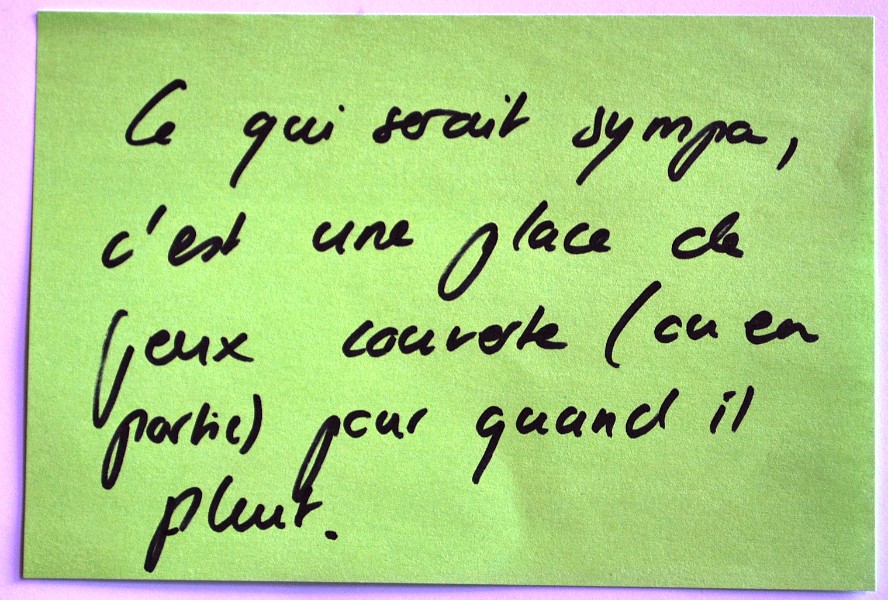 Ce qui serait sympa,
c'est une place de
jeux couverte (ou en
partie) pour quand il
pleut.